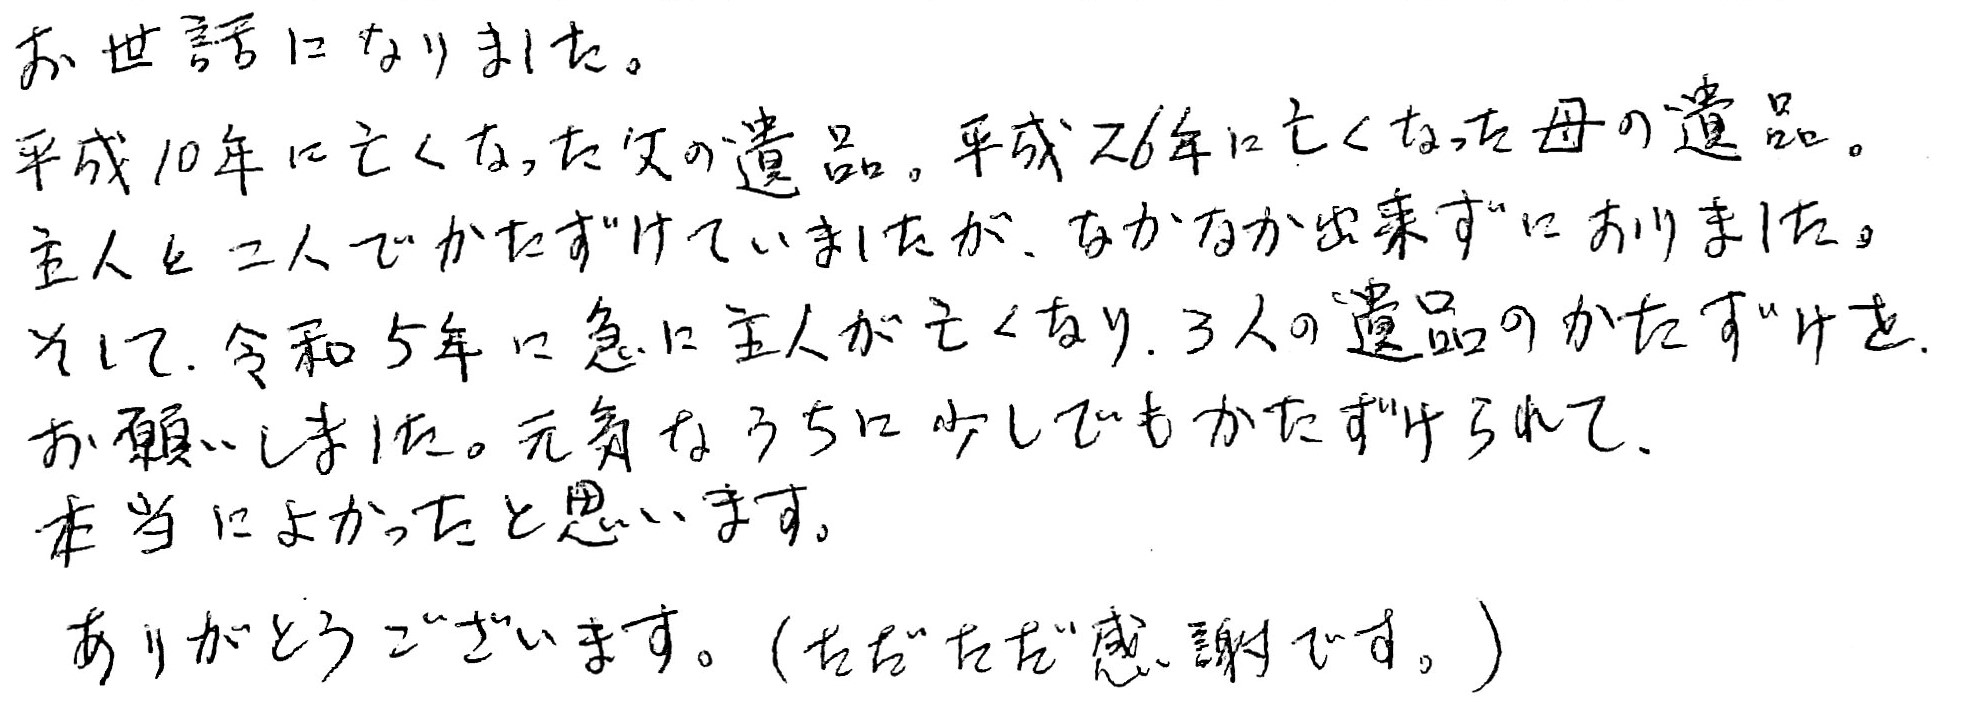 お世話になりました。
平成10年に亡くなった父の遺品。平成26年に亡くなった母の遺品。
主人と二人でかたずけていましたが、なかなか出来ずにおりました。
そして、令和5年に急に主人が亡くなり、3人の遺品のかたずけを、
お願いしました。元気なうちに少しでもかたずけられて、
本当によかったと思います。
ありがとうございます。(ただただ感謝です。)